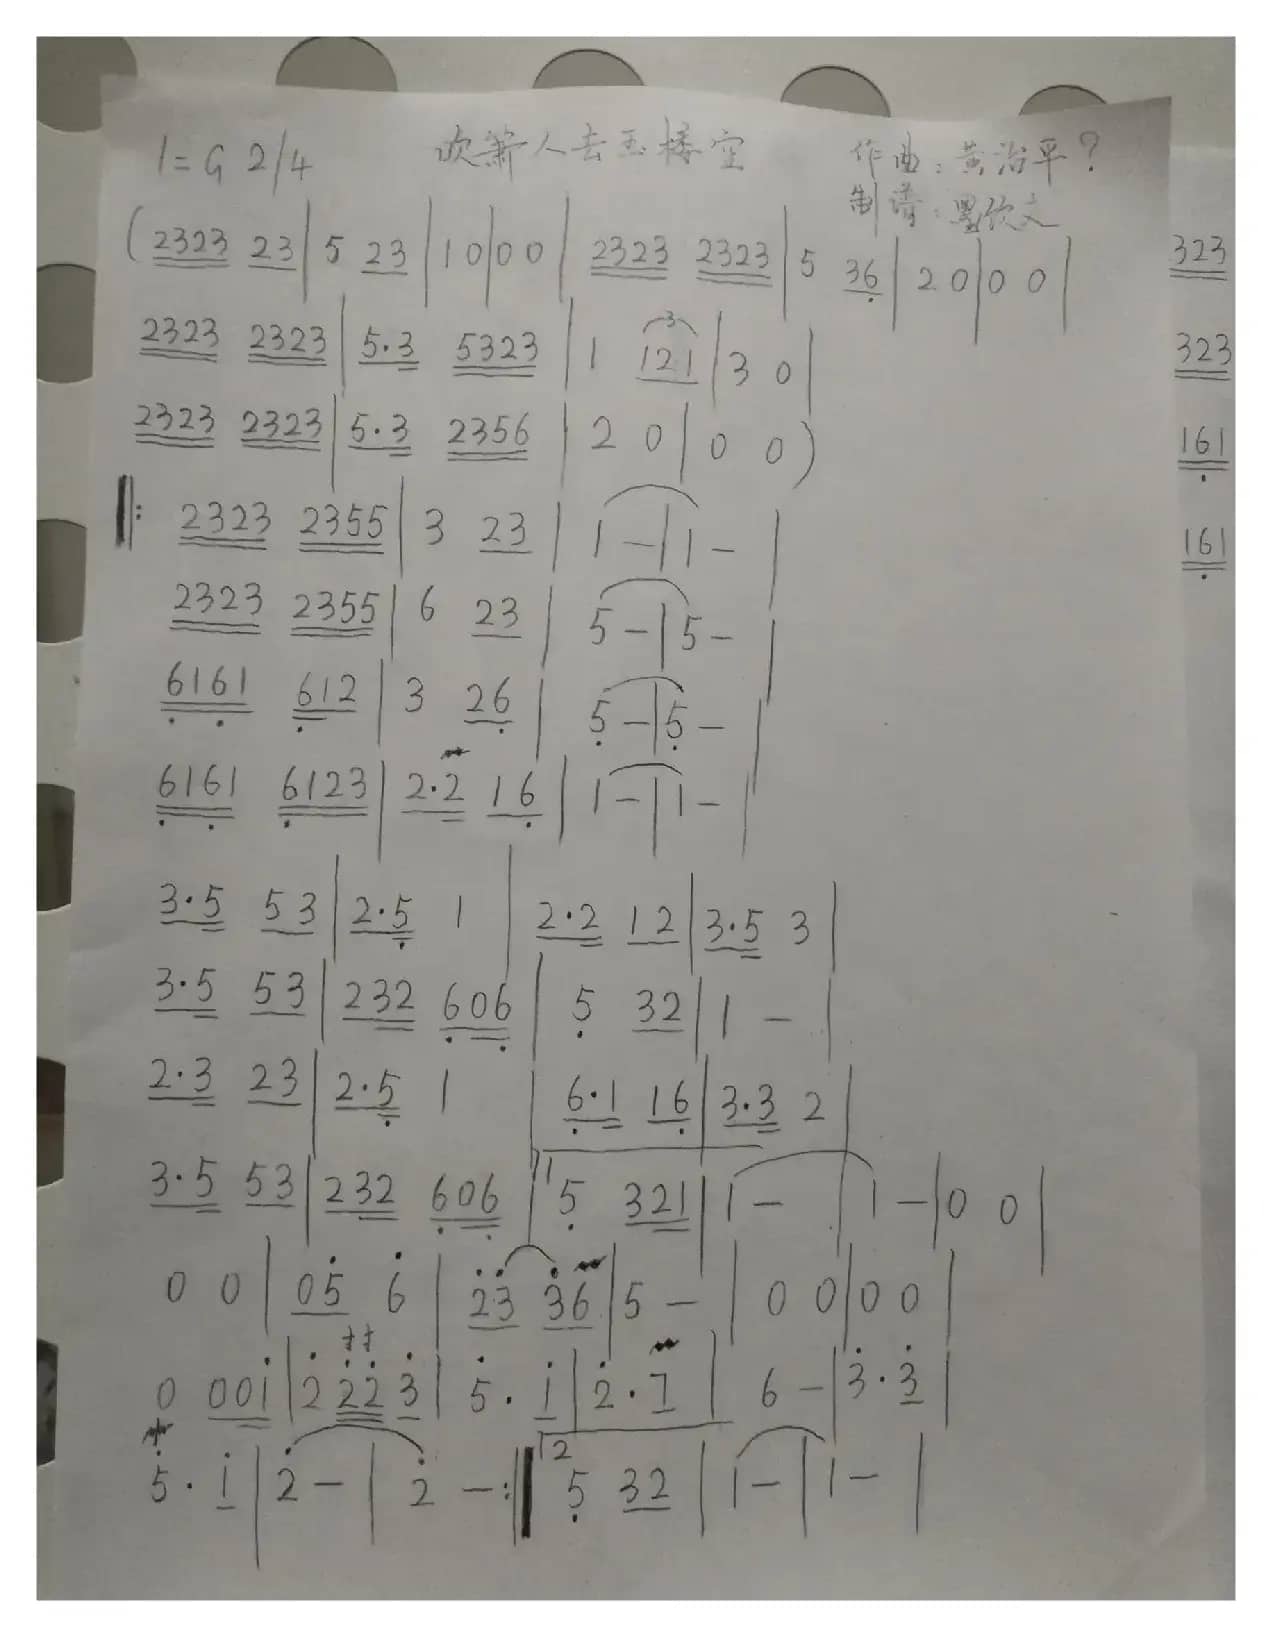 1=G 2/4 吹箫人去玉楼空 作曲:黄治平?
制谱:墨饮文
(2323 23|5 23|10|00|2323 2323|5 36|20|00|
2323 2323|5·3 5323|1 121|3 0|
2323 2323|5·3 2356|2 0|0 0)
‖: 2323 2355|3 23|1 -|1 -|
2323 2355|6 23|5 -|5 -|
6161 612|3 26|5 -|5 -|
6161 6123|2·2 16|1 -|1 -|
3·5 53|2·5 1|2·2 12|3·5 3|
3·5 53|232 606|5 32|1 -|
2·3 23|2·5 1|6·1 16|3·3 2|
3·5 53|232 606|1 5 321|1 -|1 -|0 0|
0 0|05 6|23 36|5 -|0 0|0 0|
0 001|2 22 3|5·1|2·7|6 -|3·3|
5·1|2 -|2 -:‖2 5 32|1 -|1 -|
323
323
161
161